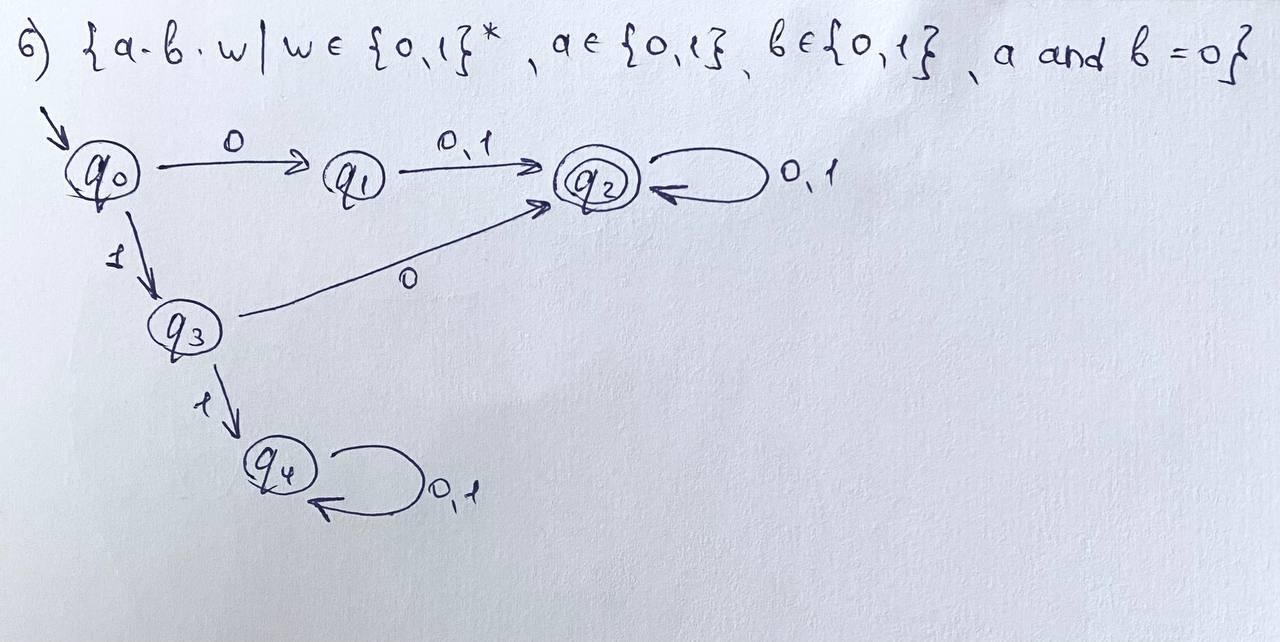 б) {a·b·w | w ∈ {0,1}*, a ∈ {0,1}, b ∈ {0,1}, a and b = 0}
0 0,1
q0 q1 q2 0,1
1
0
q3
1
q4 0,1